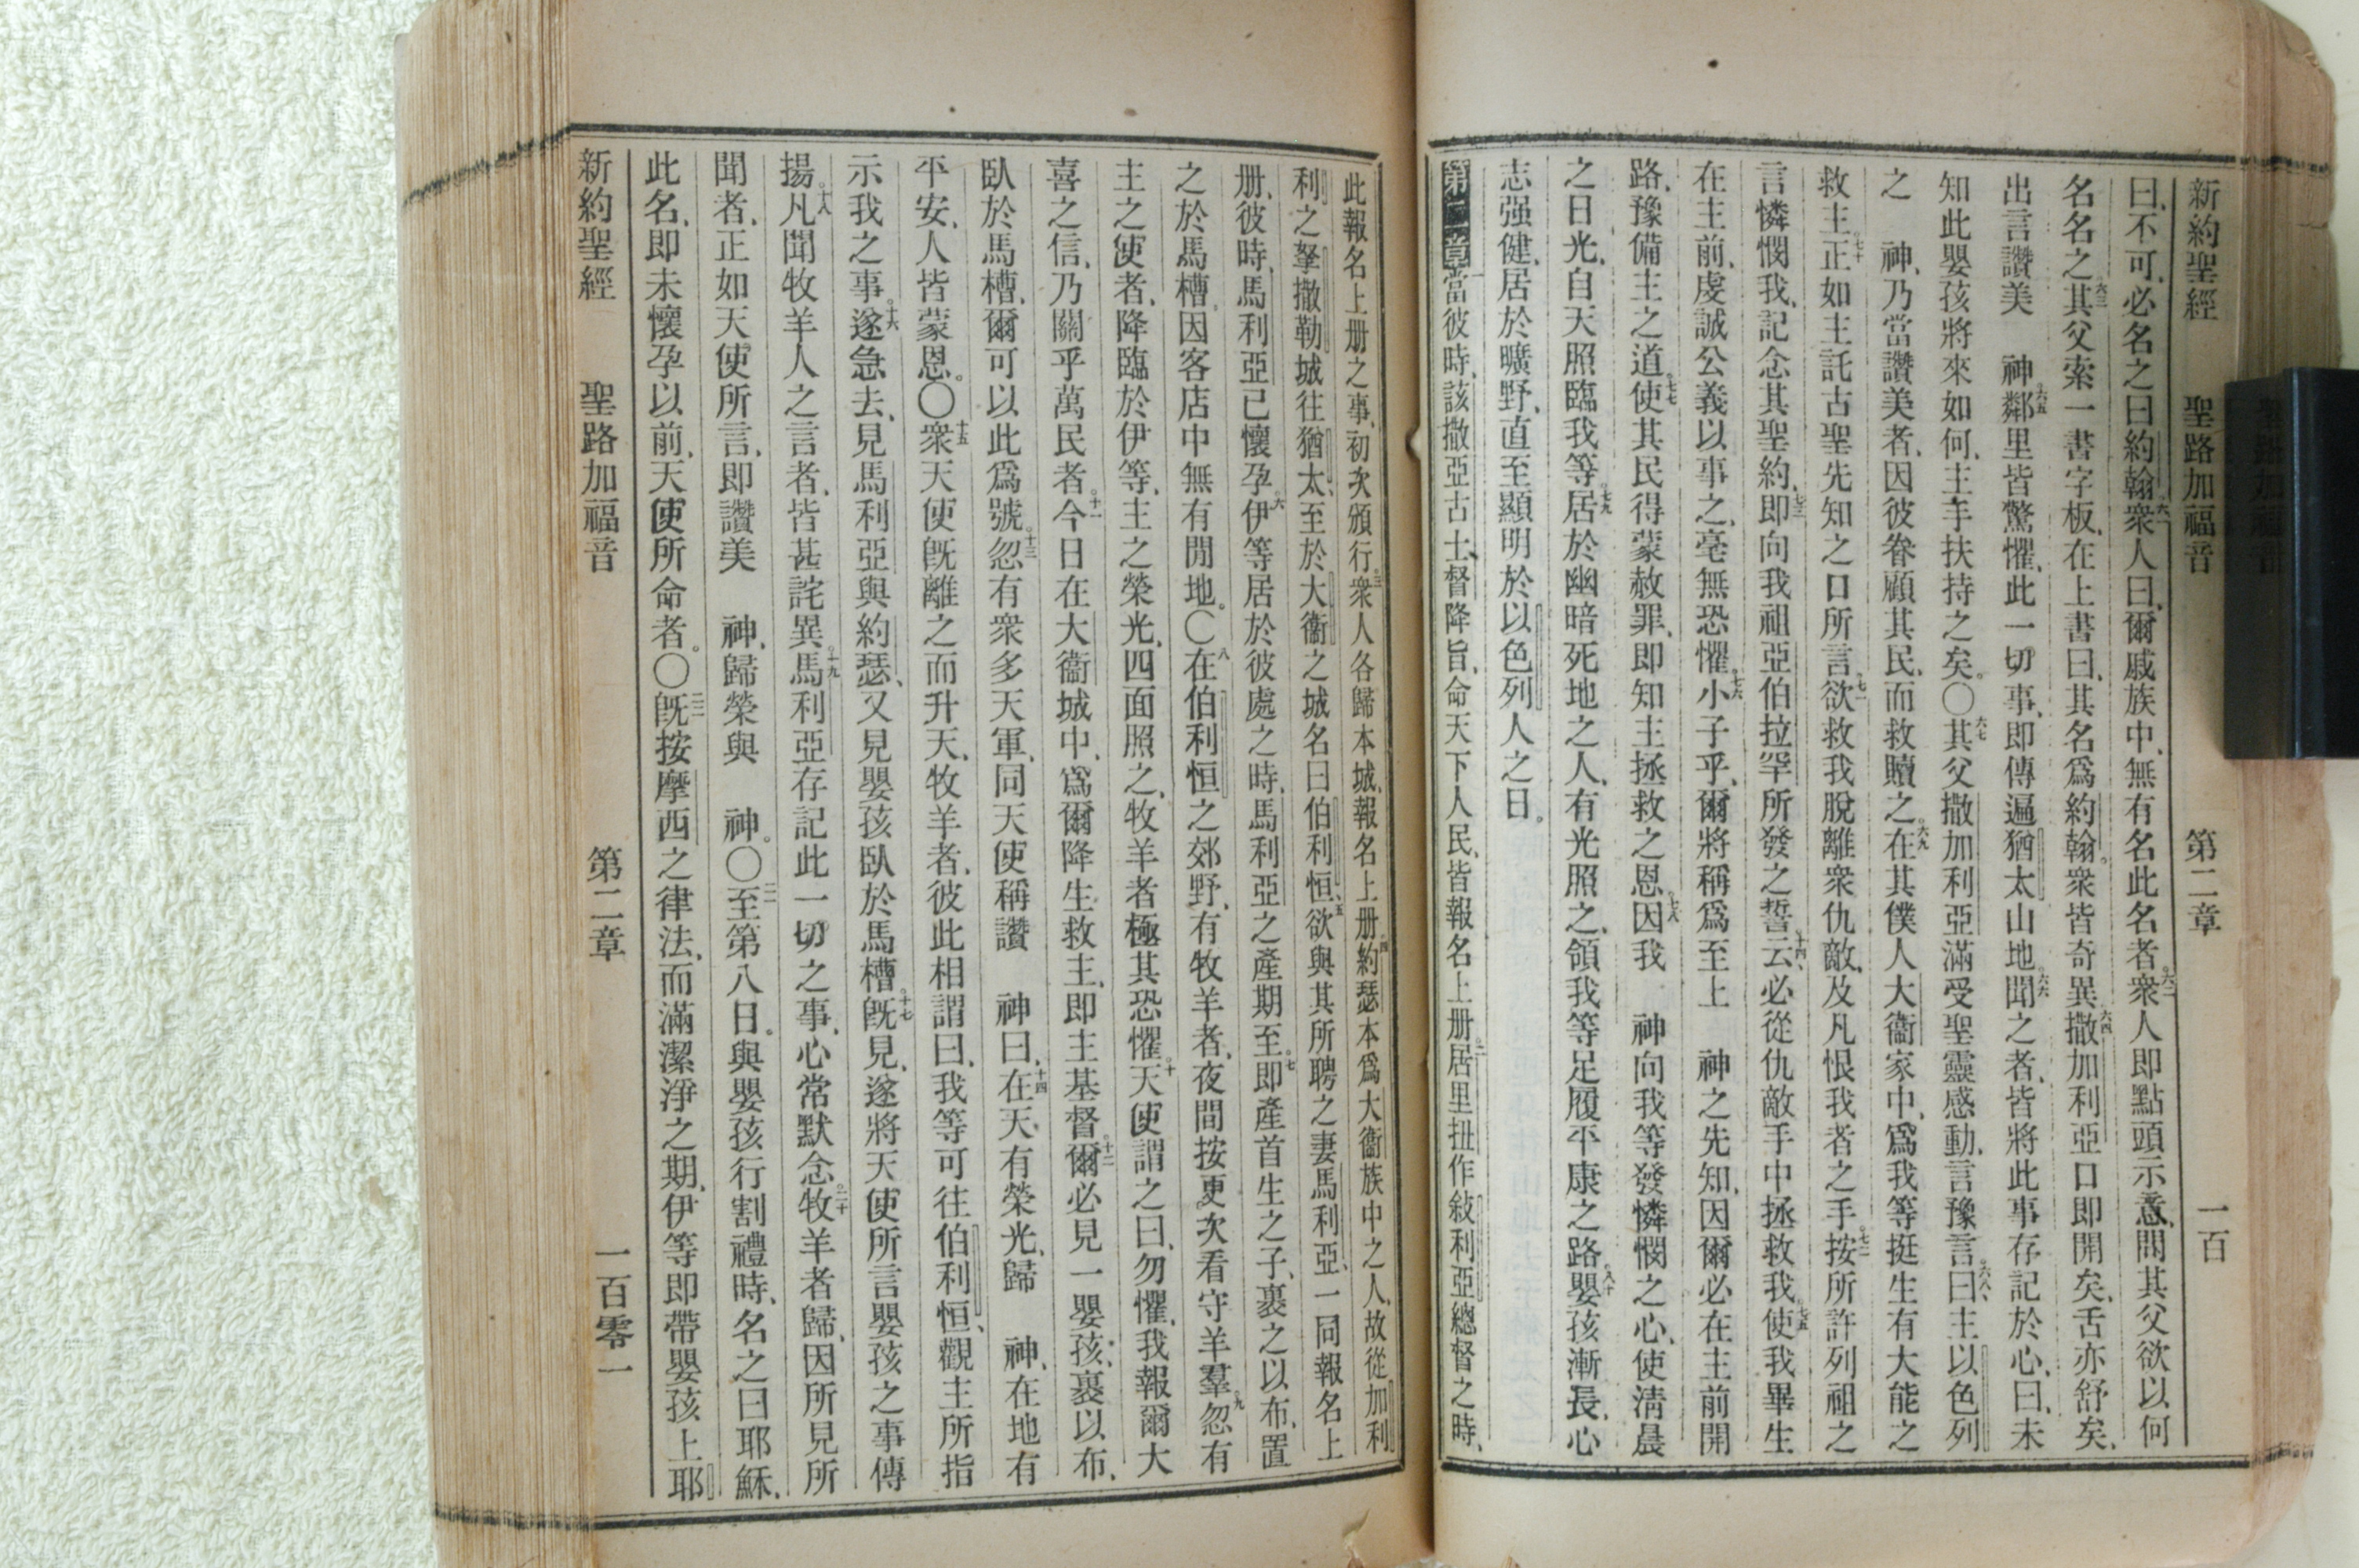 新約聖經 聖路加福音 第二章 一百
曰、不可、必名之曰約翰。六一衆人曰、爾戚族中、無有名此名者。六二衆人即點頭示意、問其父欲以何
名名之。六三其父索一書字板、在上書曰、其名爲約翰。衆皆奇異。六四撒加利亞口即開矣、舌亦舒矣、
出言讚美 神。六五鄰里皆驚懼、此一切事、即傳遍猶太山地。六六聞之者、皆將此事存記於心、曰、未
知此嬰孩將來如何、主手扶持之矣。〇六七其父撒加利亞滿受聖靈感動、言豫言。六八曰、主以色列
之 神、乃當讚美者、因彼眷顧其民、而救贖之。六九在其僕人大衞家中、爲我等挺生有大能之
救主。七十正如主託古聖先知之口所言。七一欲救我脫離衆仇敵、及凡恨我者之手。七二按所許列祖之
言憐憫我、記念其聖約。七三即向我祖亞伯拉罕所發之誓。七四云、必從仇敵手中拯救我。七五使我畢生
在主前、虔誠公義以事之、毫無恐懼。七六小子乎、爾將稱爲至上 神之先知、因爾必在主前開
路、豫備主之道。七七使其民得蒙赦罪、即知主拯救之恩。七八因我 神向我等發憐憫之心、使淸晨
之日光、自天照臨我等。七九居於幽暗死地之人、有光照之、領我等足履平康之路。八十嬰孩漸長、心
志强健、居於曠野、直至顯明於以色列人之日。
第二章 一當彼時、該撒亞古士督降旨、命天下人民、皆報名上册。二居里扭作敍利亞總督之時、
此報名上册之事、初次頒行。三衆人各歸本城、報名上册。四約瑟本爲大衞族中之人、故從加利
利之拏撒勒城往猶太、至於大衞之城名曰伯利恒、五欲與其所聘之妻馬利亞、一同報名上
册、彼時、馬利亞已懷孕。六伊等居於彼處之時、馬利亞之產期至。七即產首生之子、裹之以布、置
之於馬槽、因客店中無有閒地。〇八在伯利恒之郊野、有牧羊者、夜間按更次看守羊羣。九忽有
主之使者、降臨於伊等、主之榮光、四面照之、牧羊者極其恐懼。十天使謂之曰、勿懼、我報爾大
喜之信、乃關乎萬民者。十一今日在大衞城中、爲爾降生救主、即主基督。十二爾必見一嬰孩、裹以布、
臥於馬槽、爾可以此爲號。十三忽有衆多天軍、同天使稱讚 神曰、十四在天有榮光、歸 神、在地有
平安、人皆蒙恩。〇十五衆天使旣離之而升天、牧羊者、彼此相謂曰、我等可往伯利恒、觀主所指
示我之事。十六遂急去、見馬利亞與約瑟、又見嬰孩臥於馬槽。十七旣見、遂將天使所言嬰孩之事傳
揚。十八凡聞牧羊人之言者、皆甚詫異。十九馬利亞存記此一切之事、心常默念。二十牧羊者歸、因所見所
聞者、正如天使所言、即讚美 神、歸榮與 神。〇二一至第八日、與嬰孩行割禮時、名之曰耶穌、
此名、即未懷孕以前、天使所命者。〇二二旣按摩西之律法、而滿潔淨之期、伊等即帶嬰孩上耶
新約聖經 聖路加福音 第二章 一百零一